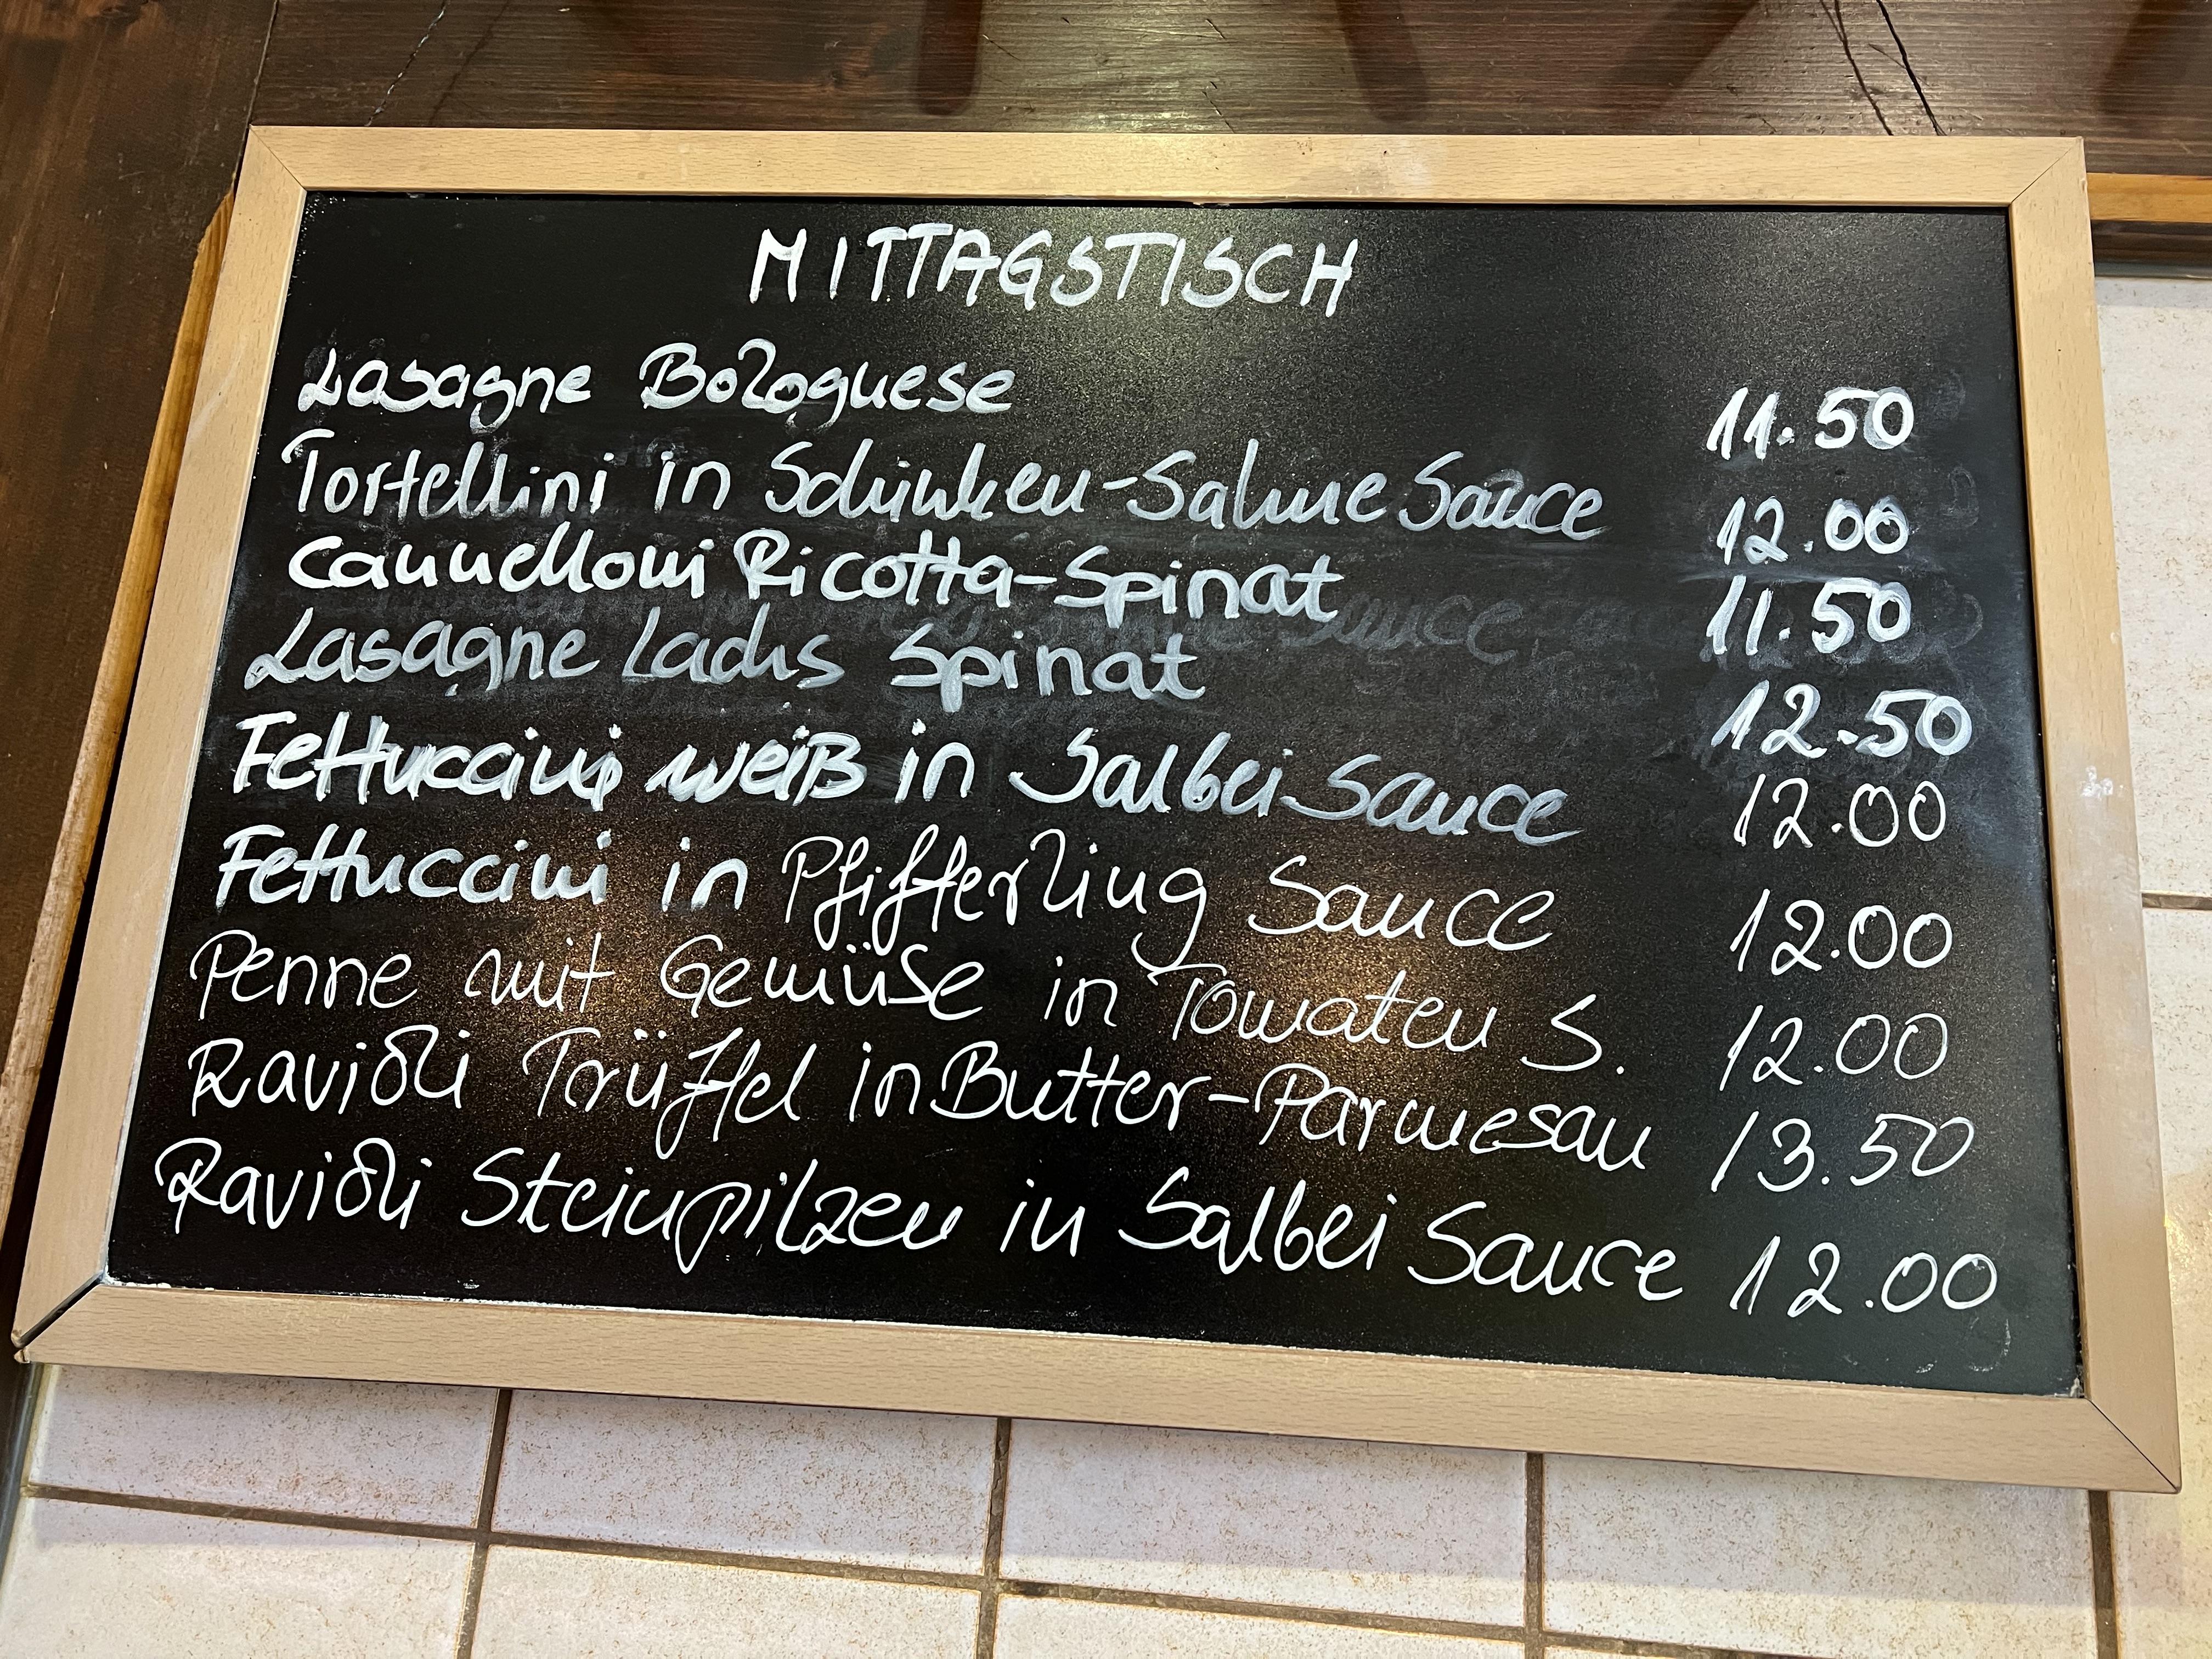 MITTAGSTISCH
Lasagne Bolognese 11.50
Tortellini in Schinken-Sahne Sauce 12.00
Cannelloni Ricotta-Spinat 11.50
Lasagne Lachs Spinat 12.50
Fettuccini weiß in Salbei Sauce 12.00
Fettuccini in Pfifferling Sauce 12.00
Penne mit Gemüse in Tomaten S. 12.00
Ravioli Trüffel in Butter-Parmesan 13.50
Ravioli Steinpilzen in Salbei Sauce 12.00